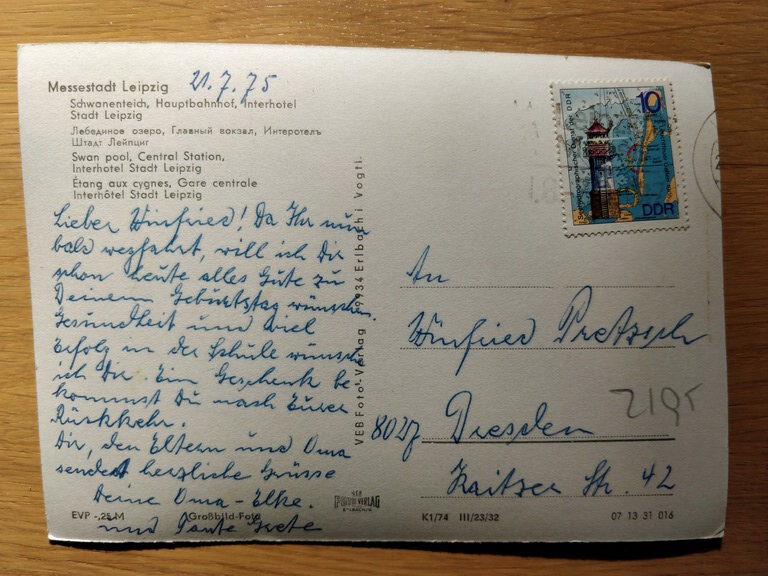 Messestadt Leipzig 21.7.75
Schwanenteich, Hauptbahnhof, Interhotel
Stadt Leipzig
Лебединое озеро, Главный вокзал, Интеротель
Штадт Лейпциг
Swan pool, Central Station,
Interhotel Stadt Leipzig
Étang aux cygnes, Gare centrale
Interhôtel Stadt Leipzig
Lieber Winfried! Da Ihr nun
bald wegfahrt, will ich Dir
schon heute alles Gute zu
Deinem Geburtstag wünschen.
Gesundheit und viel
Erfolg in der Schule wünsche
ich Dir. Ein Geschenk be-
kommst Du nach Eurer
Rückkehr.
Dir, den Eltern und Oma
sendet herzliche Grüsse
Deine Oma-Elke.
und Tante Grete
EVP -,25 M Großbild-Foto
VEB Foto-Verlag 9934 Erlbach i Vogtl.
10
DDR
An
Winfried Pretzsch
8027 Dresden
Kaitzer Str. 42
2195
K1/74 III/23/32 07 13 31 016